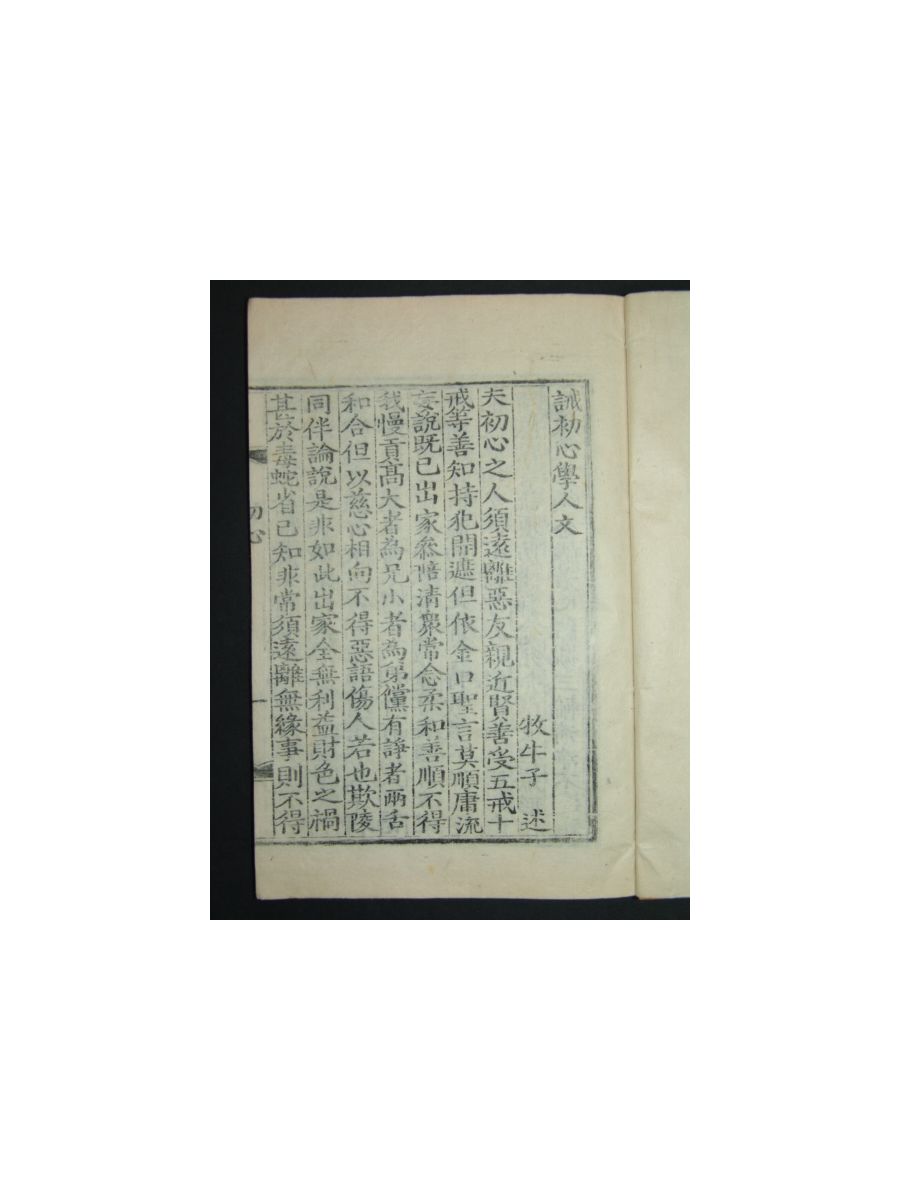 誡初心學人文
牧牛子 述
夫初心之人須遠離惡友親近賢善受五戒十
戒等善知持犯開遮但依金口聖言莫順庸流
妄說既已出家叅陪清衆常念柔和善順不得
我慢貢高大者為兄小者為弟儻有諍者兩舌
和合但以慈心相向不得惡語傷人若也欺陵
同伴論說是非如此出家全無利益財色之禍
甚於毒蛇省己知非常須遠離無緣事則不得
初心
一